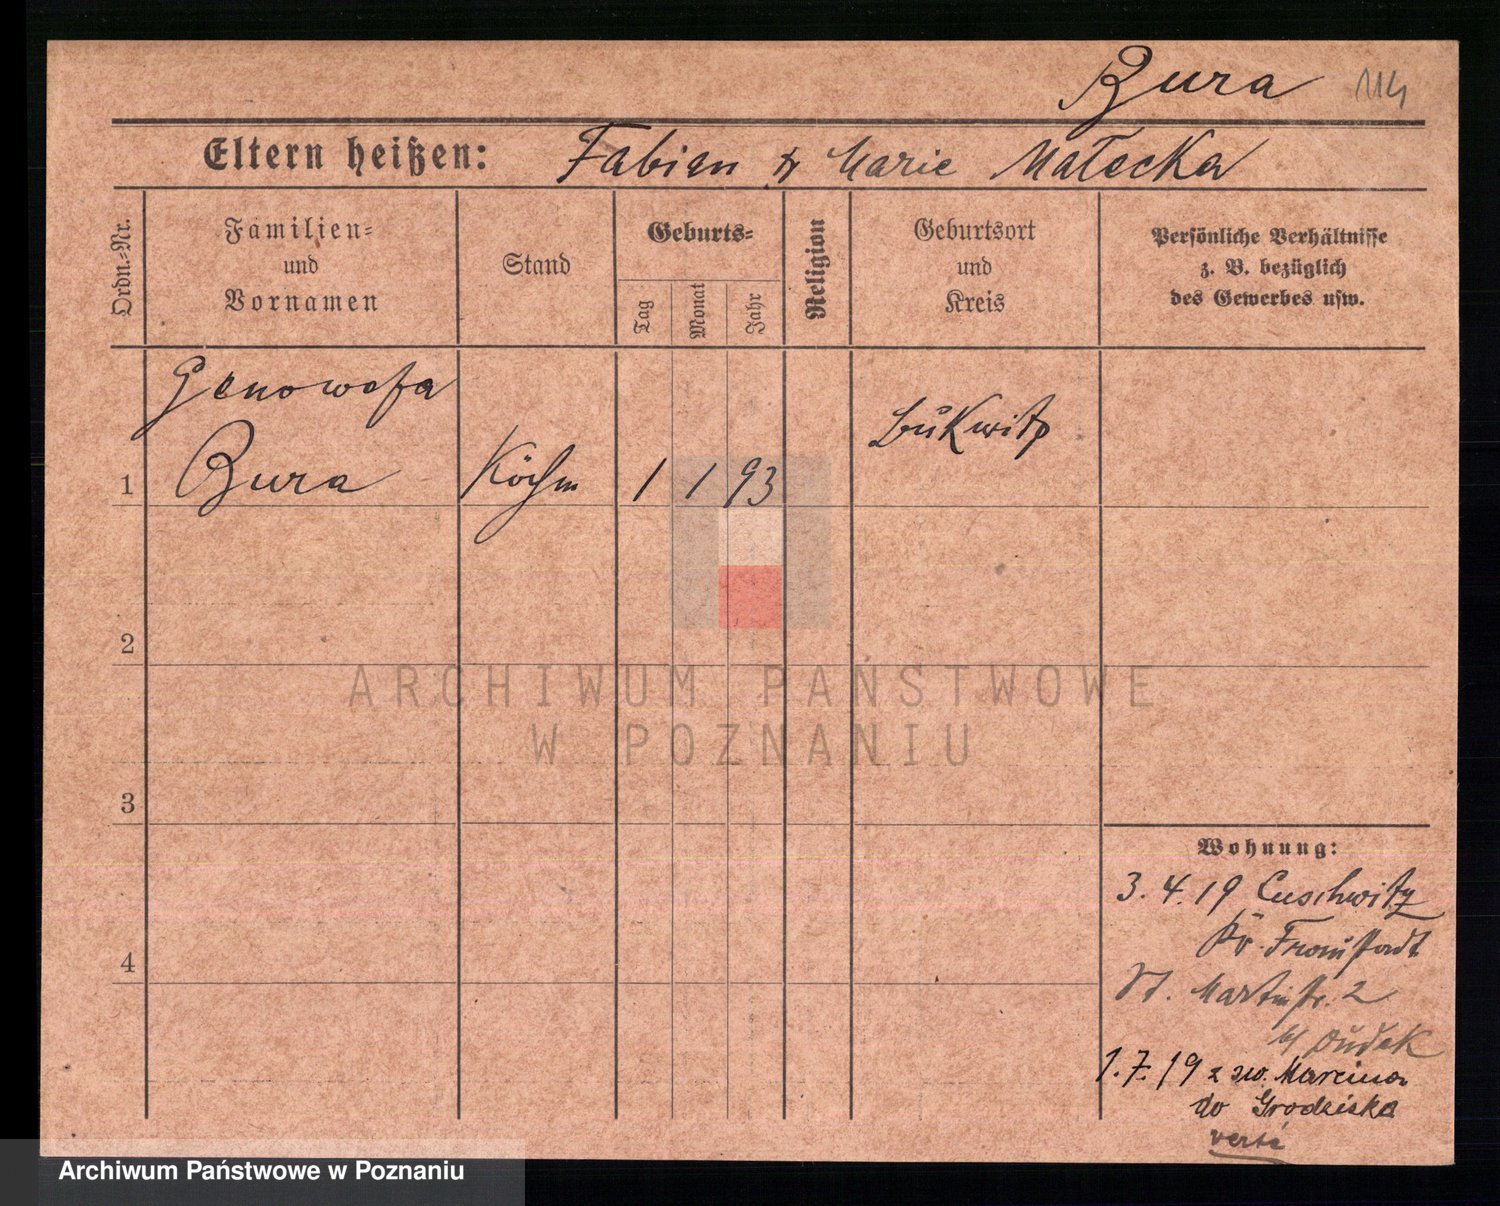 Bura 114
Eltern heißen: Fabian & Marie Małecka
Ordn.-Nr.
Familien-
und
Vornamen
Stand
Geburts-
Tag
Monat
Jahr
Religion
Geburtsort
und
Kreis
Persönliche Verhältnisse
z. B. bezüglich
des Gewerbes usw.
Genowefa
Bura
1
Köchin
1 1 93
Bukwitz
2
ARCHIWUM PAŃSTWOWE
W POZNANIU
3
4
Wohnung:
3.4.19 Cuschwitz
Kr. Fraustadt
St. Martinstr. 2
b/ Dudek
1.7.19 z św. Marcina
do Grodziska
verte
Archiwum Państwowe w Poznaniu